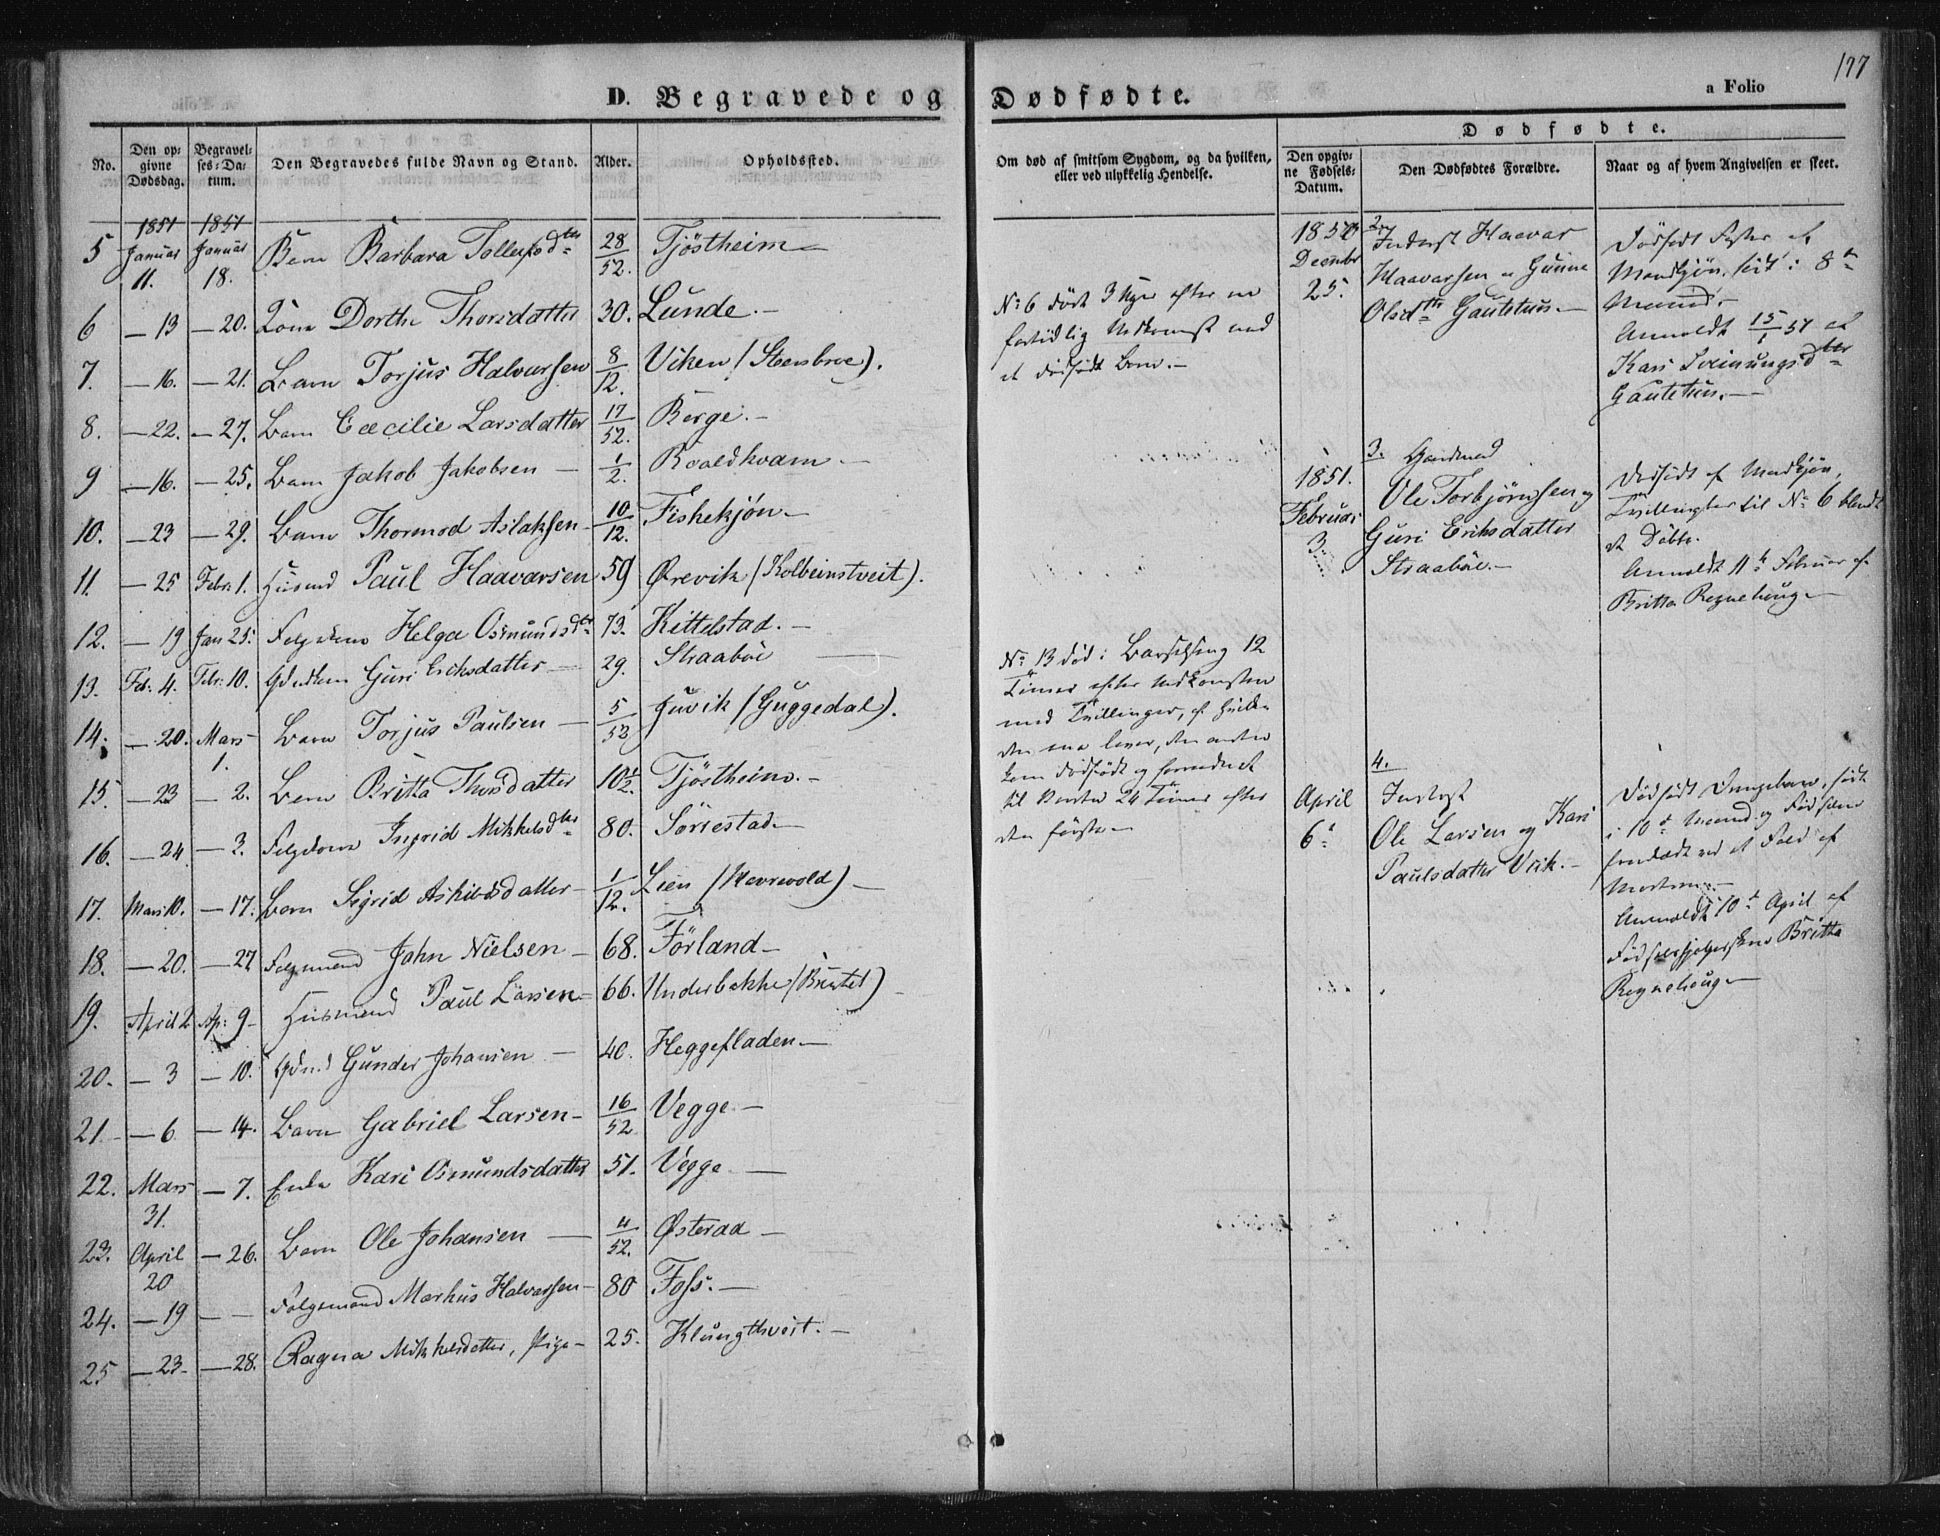 177
D. Begravede og Dødfødte.
a Folio
No.
Den opgivne Dødsdag.
Begravelses-Datum.
Den Begravedes fulde Navn og Stand.
Alder.
Opholdssted.
Om død af smitsom Sygdom, og da hvilken,
eller ved ulykkelig Hendelse.
Dødfødte.
Den opgivne Fødsels-Datum.
Den Dødfødtes Forældre.
Naar og af hvem Angivelsen er skeet.
1851 1851
5 Januar 11. Januar 18. Barn Barbara Tollefsdtr 28/52. Tjöstheim
6 — 13 — 20. Kone Dorthe Thorsdatter 30. Lunde.
7. — 16. — 21. Barn Torjus Halvarsen 8/12. Viken (Steenbroe).
8. — 22. — 27. Barn Cæcilie Larsdatter 17/52. Berge.
9 — 16. — 25. Barn Jakob Jakobsen 1/2. Roaldkvam
10. — 23 — 29. Barn Thormod Aslaksen 10/12. Fiskekjön
11. — 25 Febr. 1. Husmd Paul Haavarsen 59 Ørevik (Kolbeinstveit).
12. — 19 Jan 25. Helga Osmundsdtr 73. Kittelstad.
13. Feb: 4. Febr: 10. Guri Eriksdatter 29. Straaböe
14. — 20. Mars 1. Barn Torjus Paulsen 5/52 Juvik (Guggedal).
15. — 23 — 2. Barn Britta Thorsdatter 10 1/2. Tjöstheim.
16. — 24 — 3. Ingrid Mikkelsdtr 80. Sörrestad
17. Mars 10. — 17. Barn Sigrid Askilsdatter 1/12. Lien (Havrevold)
18. — 20. — 27 Folgemand John Nielsen 68. Förland
19. April 2 Ap: 9 Husmand Paul Larsen 66. Underbakke (Bustet)
20. — 3 — 10. Gdmd Gunder Johansen 40. Heggefladen
21 — 6 — 14. Barn Gabriel Larsen 16/52 Vegge.
22. Mars 31. — 7. Enke Kari Osmundsdatter 51. Vegge
23. April 20 — 26. Barn Ole Johansen 4/52. Østeraa
24. — 19 — Folgemand Markus Halvarsen 80 Foss.
25 — 23 — 28. Ragna Mikkelsdatter, Pige 25. Klungtveit.
No 6 død 3 Uger efter en
fortidlig Nedkomst med
et dødfødt Barn.
No 13 død i Barselseng 12
Timer efter Nedkomsten
med Tvillinger, af hvilke
den ene lever, den anden
kom dødfødt og
til Verden 24 Timer efter
den første
1850 December 25.
2. Inderst Haavar
Haavarsen & Gunne
Olsdtr Gautetun.
Dødfødt Foster af
Mandkjøn, født i 8de
Maaned.
Anmeldt 15/1 51 af
Kari Sveinungsdtr
Gautetun.
1851. Februar 3.
3. Gaardmand
Ole Torbjörnsen og
Guri Eriksdatter
Straaböe.
Dødfødt af Mandkjøn,
Tvilling til No 6 blandt
de Døbte.
Anmeldt 11te Februar af
Britta Regnehaug
April 6
4.
Inderst
Ole Larsen og Kari
Paulsdatter Vik.
Dødfødt Drengebarn, født
i 10de Maaned og Fødselen
ved et Fald af
Moderen.
Anmeldt 10de April af
Fødselshjelpersken Britta
Regnehaug